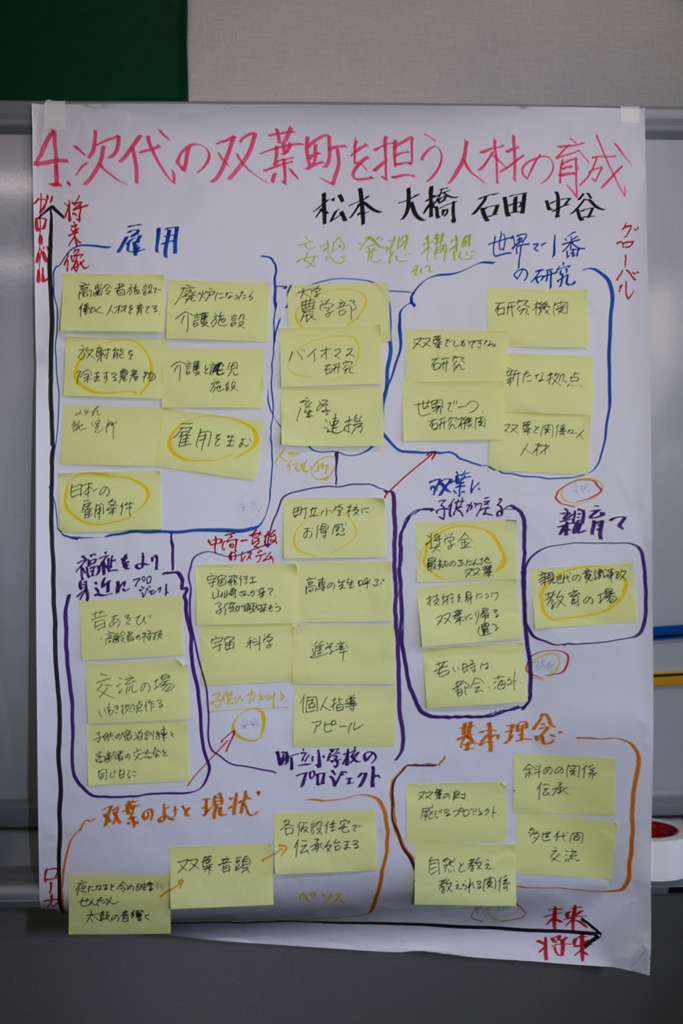 4.次代の双葉町を担う人材の育成
松本 大橋 石田 中谷
グローバル
将来像
雇用
高齢者施設で
働く人材を育てる
廃炉になったら
介護施設
放射能を
除去する農産物
介護と託児
施設
託児所
雇用を生む
日本一の
雇用条件
妄想 発想 構想
大学
農学部
バイオマス
研究
産学
連携
世界で1番
の研究
グローバル
研究機関
双葉でしかできない
研究
新たな拠点
世界で一つ
研究機関
双葉と関係ない人
人材
福祉をより
身近にプロ
ジェクト
昔あそび
・高齢者の特技
交流の場
いわき拠点作る
子供の宿泊訓練と
高齢者の交流会を
同じ日に
中高一貫校
システム
町立小学校に
お得感
宇宙飛行士
山崎さんが来て
子供が興味もつ
高専の先生呼ぶ
宇宙 科学
進学率
個人指導
アピール
町立小学校の
プロジェクト
双葉に
子供が戻る
奨学金
双葉
技術を身につけ
双葉に帰る
若い時は
都会、海外
親育て
親世代の意識改革
教育の場
双葉のよさと現状
夜になると
太鼓の音響く
双葉音頭
各仮設住宅で
伝承始まる
基本理念
斜めの関係
伝承
双葉の
感じるプロジェクト
多世代間
交流
自然と教え
教えられる関係
未来
将来